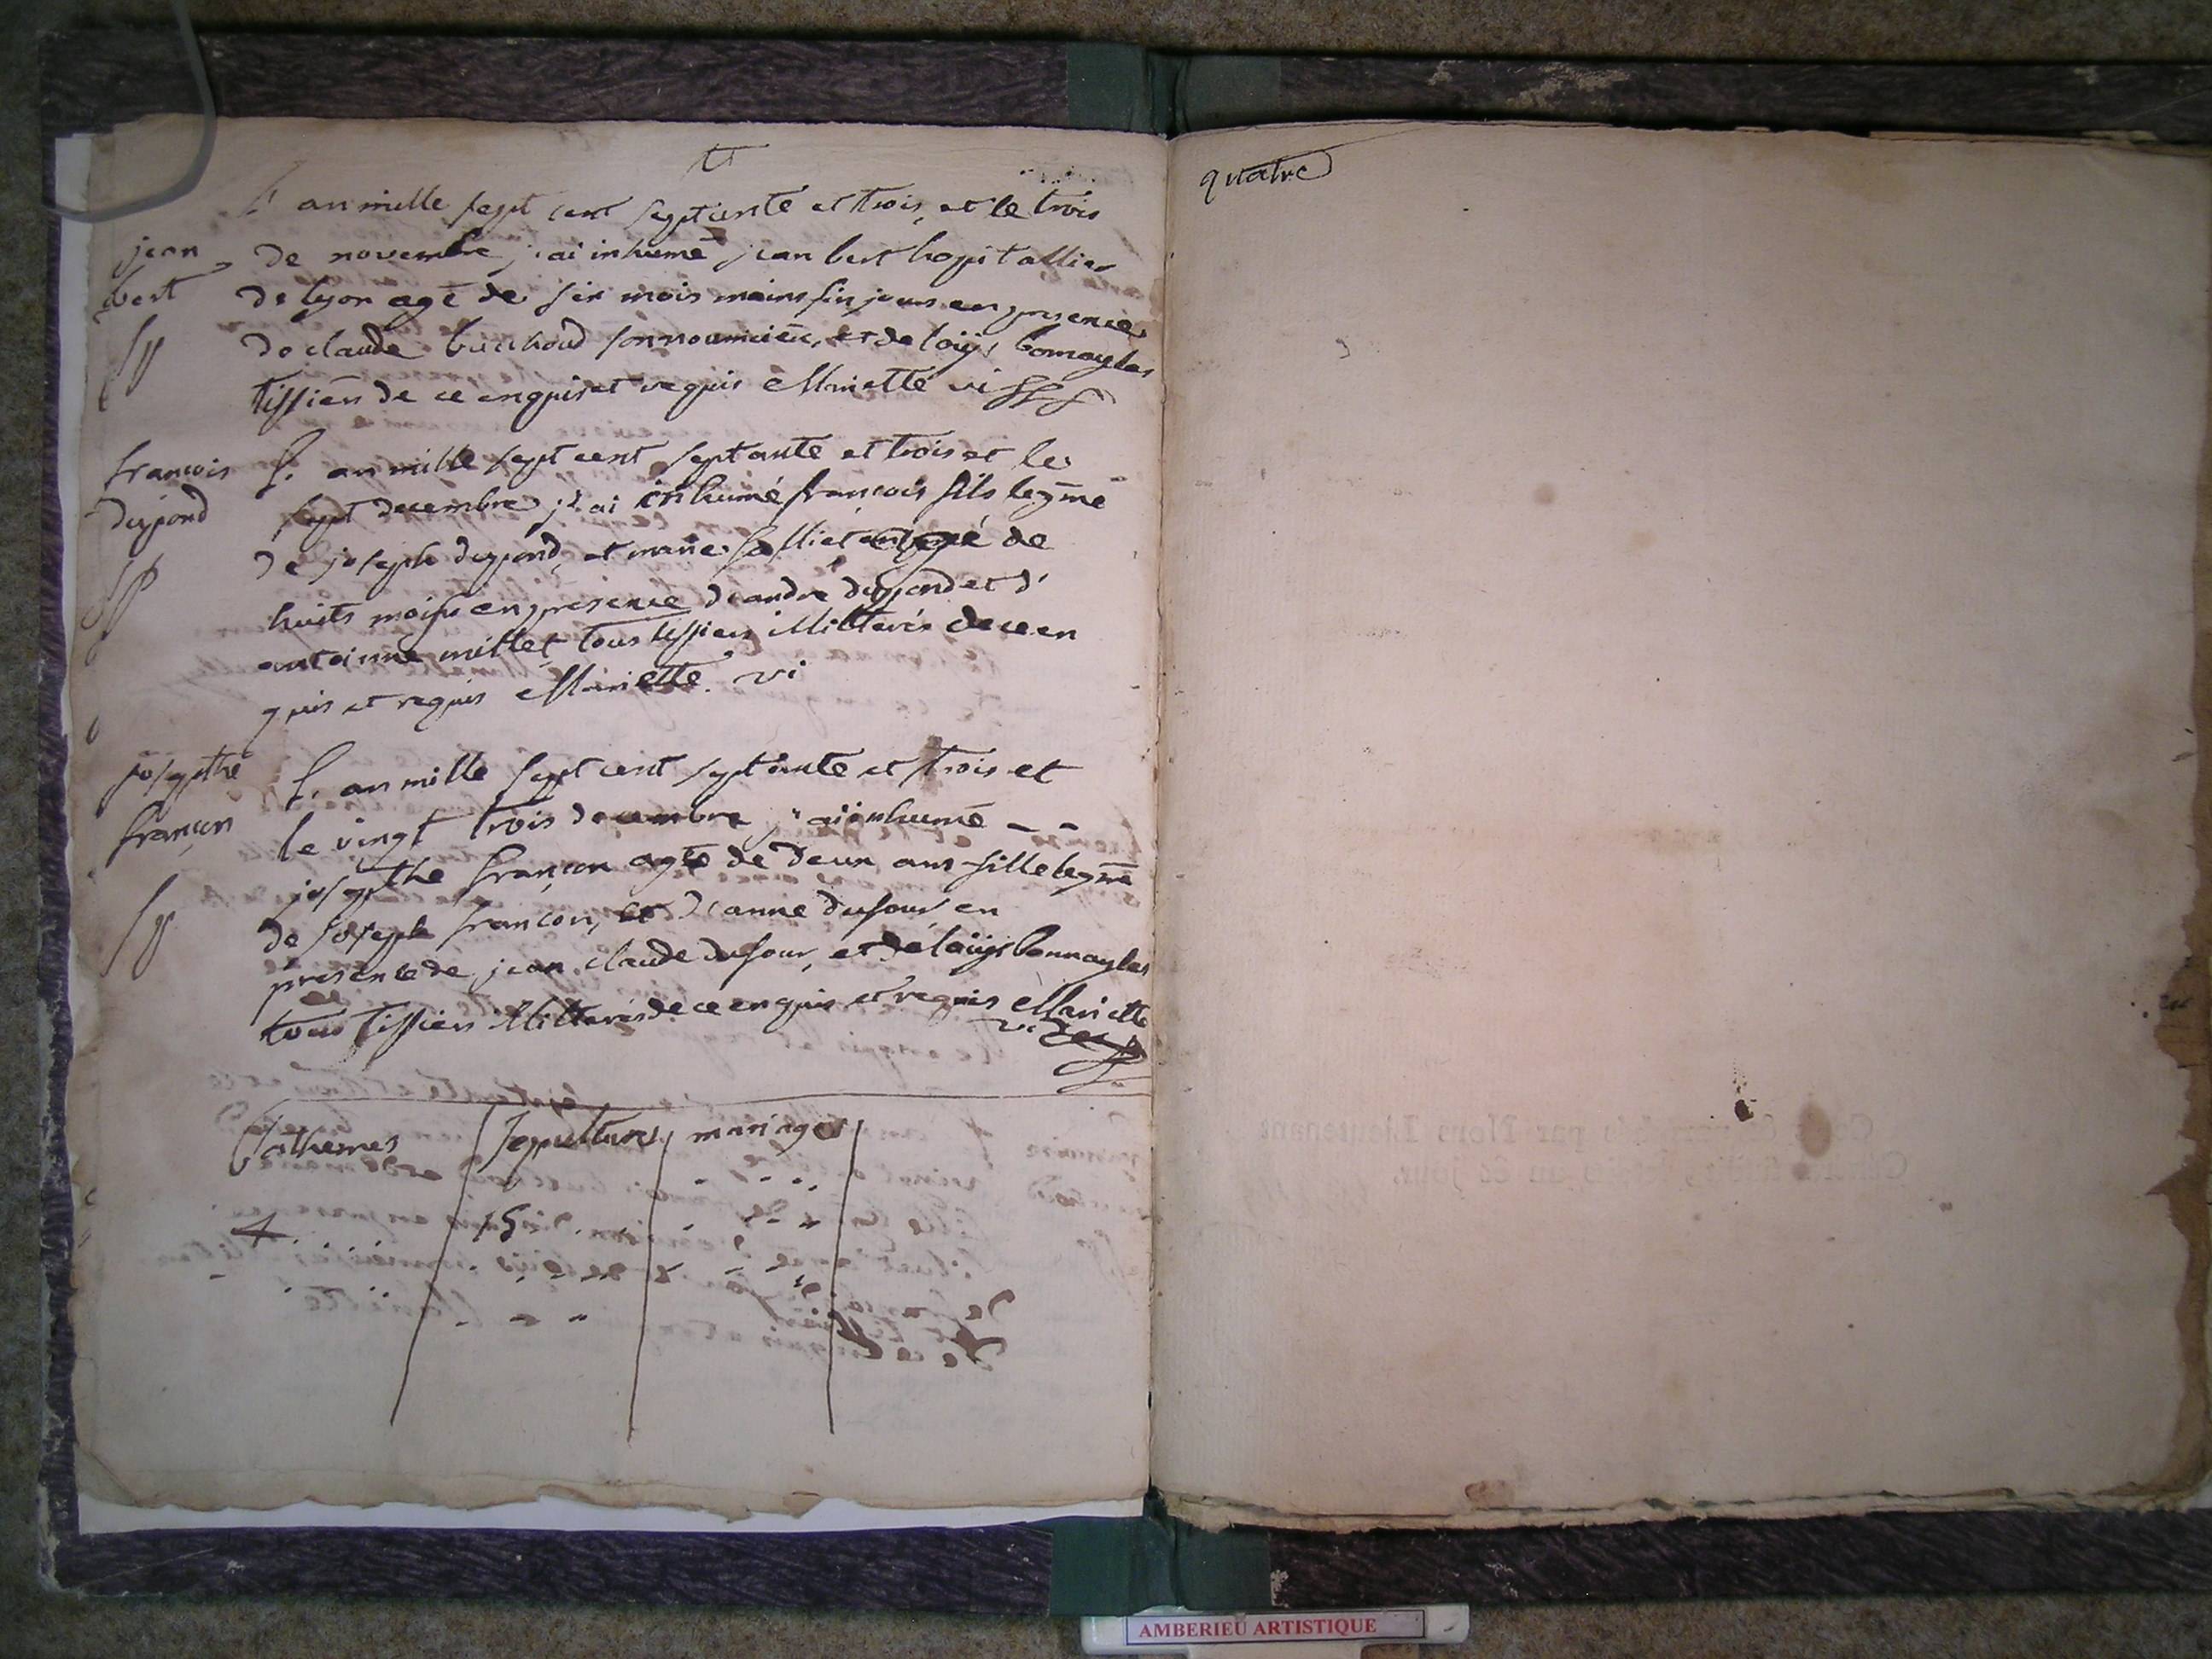 L'an mille sept cent septante et trois, et le trois
jean
de novembre j'ai inhumé jean bert hopitallier
bert
de lyon agé de six mois moins six jours en presence
Sp
de claude buchoud son nourricier, et de loüys
tissiers de ce enquis et requis Mariette vi
francois
L'an mille sept cent septante et trois et le
dupond
sept decembre j'ai inhumé francois fils legme
de joseph dupond, et marie agé de
Sp
huits mois en presence d'andré dupond et d'
antoinne millet tous tissiers illitterés de ce en
quis et requis Mariette. vi
josepthe
L'an mille sept cent septante et trois et
françon
le vingt trois decembre j'ai inhumé - -
josepthe françon agée de deux ans fille legme
Sp
de joseph françon, et d'anne dufour en
presence de jean claude dufour, et de loüys
tous tissiers illitterés de ce enquis et requis Mariette
vi
Bathemes sepultures mariages
4 15
quatre
AMBERIEU ARTISTIQUE